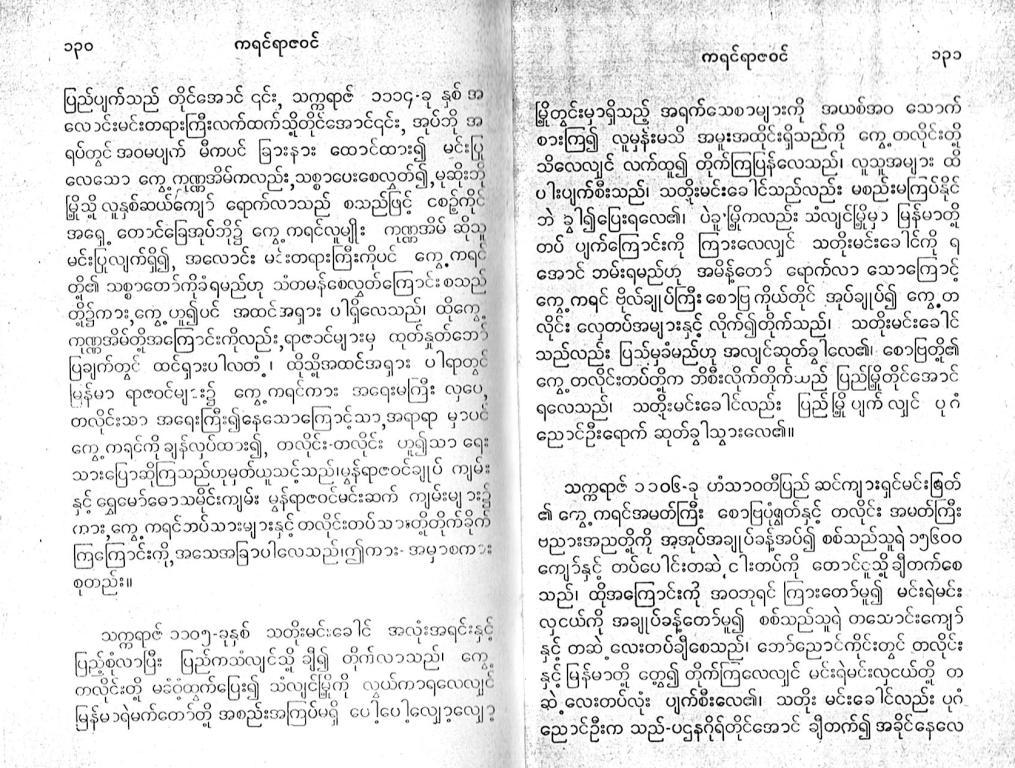 ၁၃၀
ကရင်ရာဇဝင်
ပြည်ပျက်သည် တိုင်အောင် ၎င်း, သက္ကရာဇ် ၁၁၁၄-ခု နှစ် အ
လောင်းမင်းတရားကြီးလက်ထက်သို့တိုင်အောင်၎င်း, အုပ်ဘို အ
ရပ်တွင် အဝမပျက် မီကပင် ခြားနား ထောင်ထား၍ မင်းပြု
လေသော ကွေ့ ကုဏ္ဏအိမ်ကလည်း,သစ္စာပေးစေလွှတ်၍,မုဆိုးဘို
မြို့သို့ လူနှစ်ဆယ်ကျော် ရောက်လာသည် စသည်ဖြင့် ငစဉ့်ကိုင်
အရှေ့ တောင်ခြေအုပ်ဘို၌ ကွေ့ ကရင်လူမျိုး ကုဏ္ဏအိမ် ဆိုသူ
မင်းပြုလျက်ရှိ၍, အလောင်း မင်းတရားကြီးကိုပင် ကွေ့ ကရင်
တို့၏ သစ္စာတော်ကိုခံရမည်ဟု သံတမန်စေလွှတ်ကြောင်းစသည်
တို့၌ကား,ကွေ့ ဟူ၍ပင် အထင်အရှား ပါရှိလေသည်၊ ထိုကွေ့
ကုဏ္ဏအိမ်တို့အကြောင်းကိုလည်း,ရာဇဝင်များမှ ထုတ်နှုတ်ဘော်
ပြချက်တွင် ထင်ရှားပါလတံ့ ၊ ထိုသို့အထင်အရှား ပါရာတွင်
မြန်မာ ရာဇဝင်များ၌ ကွေ့ ကရင်ကား အရေးမကြီး လှပေ,
တလိုင်းသာ အရေးကြီး၍နေသောကြောင့်သာ,အရာရာ မှာပင်
ကွေ့ ကရင်ကို ချန်လှပ်ထား၍, တလိုင်း-တလိုင်း ဟူ၍သာ ရေး
သားပြောဆိုကြသည်ဟုမှတ်ယူသင့်သည်၊မွန်ရာဇဝင်ချုပ် ကျမ်း
နှင့် ရွှေမော်ဓောသမိုင်းကျမ်း မွန်ရာဇဝင်မင်းဆက် ကျမ်းများ၌
ကား,ကွေ့ ကရင်ဘပ်သားများနှင့်တလိုင်းတပ်သားတို့တိုက်ခိုက်
ကြကြောင်းကို,အသေအခြာပါလေသည်၊ဤကား- အမှာစကား
စုတည်း။
သက္ကရာဇ် ၁၁၀၅-ခုနှစ် သတိုးမင်းခေါင် အလုံးအရင်းနှင့်
ပြည့်စုံလာပြီး ပြည်ကသံလျင်သို့ ချီ၍ တိုက်လာသည်၊ ကွေ့
ကလိုင်းတို့ မခံဝံ့ထွက်ပြေး၍ သံလျင်မြို့ကို လွယ်ကာရလေလျှင်
မြန်မာရဲမက်တော်တို့ အစည်းအကြပ်မရှိ ပေါ့ပေါ့လျှော့လျှော့
ကရင်ရာဇဝင်
၁၃၁
မြို့တွင်းမှာရှိသည့် အရက်သေစာများကို အယစ်အဝ သောက်
စားကြ၍ လူမှန်းမသိ အမူးအထိုင်းရှိသည်ကို ကွေ့ တလိုင်းတို့
သိလေလျှင် လက်ထူ၍ တိုက်ကြပြန်လေသည်၊ လူသူအများ ထိ
ပါးပျက်စီးသည်၊ သတိုးမင်းခေါင်သည်လည်း မစည်းမကြပ်နိုင်
ဘဲ ခွါ၍ပြေးရလေ၏၊ ပဲခူးမြို့ကလည်း သံလျင်မြို့မှာ မြန်မာတို့
တပ် ပျက်ကြောင်းကို ကြားလေလျှင် သတိုးမင်းခေါင်ကို ရ
အောင် ဘမ်းရမည်ဟု အမိန့်တော် ရောက်လာ သောကြောင့်
ကွေ့ ကရင် ဗိုလ်ချုပ်ကြီး စောဗြ ကိုယ်တိုင် အုပ်ချုပ်၍ ကွေ့ တ
လိုင်း လှေတပ်အများနှင့် လိုက်၍တိုက်သည်၊ သတိုးမင်းခေါင်
သည်လည်း ပြည်မှခံမည်ဟု အလျင်ဆုတ်ခွါလေ၏၊ စောဗြတို့၏
ကွေ့ တလိုင်းတပ်တို့က ဘိစီးလိုက်တိုက်သည် ပြည်မြို့တိုင်အောင်
ရလေသည်၊ သတိုးမင်းခေါင်လည်း ပြည်မြို့ ပျက် လျှင် ပုဂံ
ညောင်ဦးရောက် ဆုတ်ခွါသွားလေ၏။
သက္ကရာဇ် ၁၁၀၆-ခု ဟံသာဝတီပြည် ဆင်ကျားရှင်မင်းမြတ်
၏ ကွေ့ ကရင်အမတ်ကြီး စောဗြပုံရွှတ်နှင့် တလိုင်း အမတ်ကြီး
ဗညားအညတို့ကို အုအုပ်အချုပ်ခန့်အပ်၍ စစ်သည်သူရဲ ၁၅၆၀၀
ကျော်နှင့် တပ်ပေါင်းတဆဲ့ ငါးတပ်ကို တောင်ငူသို့ ချီတက်စေ
သည်၊ ထိုအကြောင်းကို အဝဘုရင် ကြားတော်မူ၍ မင်းရဲမင်း
လှငယ်ကို အချုပ်ခန့်တော်မူ၍ စစ်သည်သူရဲ တသောင်းကျော်
နှင့် တဆဲ့ လေးတပ်ချီစေသည်၊ ဘော်ညောင်ကိုင်းတွင် တလိုင်း
နှင့် မြန်မာတို့ တွေ့၍ တိုက်ကြလေလျှင် မင်းရဲမင်းလှငယ်တို့ တ
ဆဲ့ လေးတပ်လုံး ပျက်စီးလေ၏၊ သတိုး မင်းခေါင်လည်း ပုဂံ
ညောင်ဦးက သည်-ပဌနဂိုရ်တိုင်အောင် ချီတက်၍ အခိုင်နေလေ